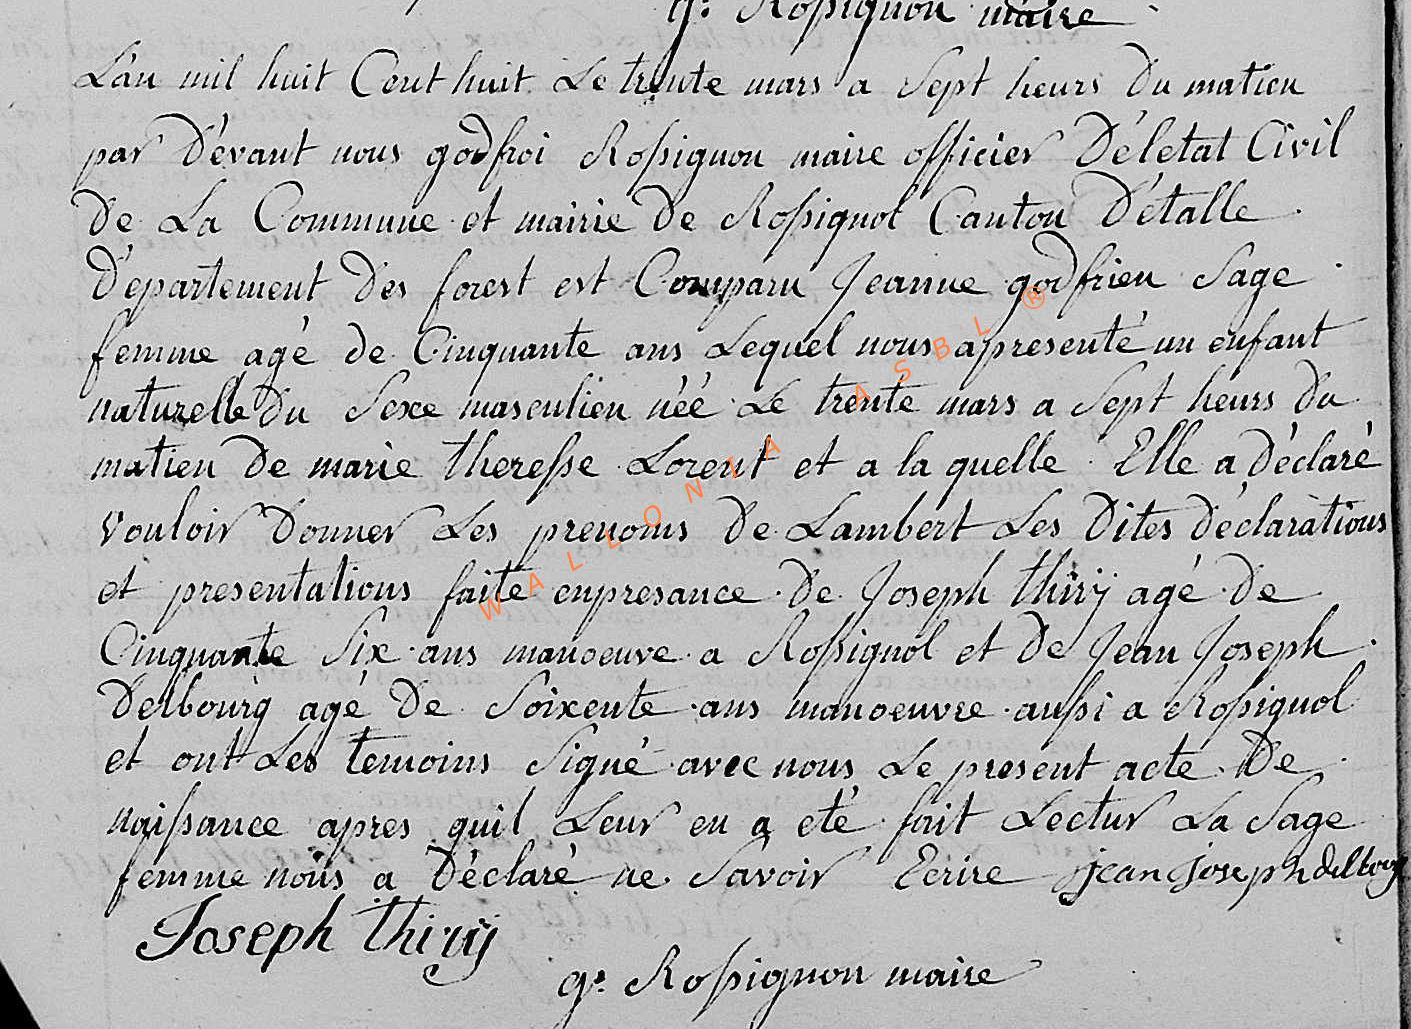 g.: Rossignon maire
L'an mil huit Cent huit Le trente mars a Sept heurs du matien
par Dévant nous godfroi Rossignon maire officier Délétat Civil
de La Commune et mairie de Rossignol Canton D'étalle
Département Des forest est Comparu Jeanne godfrien Sage
femme agé de Cinquante ans Lequel nous apresenté un enfant
naturelle du Sexe masculien néé Le trente mars a Sept heurs du
matien de marie theresse Lorent et a la quelle Elle a Déclaré
Vouloir Donner Les prenoms de Lambert Les Dites déclarations
et presentations faite enpresance de Joseph thirÿ agé de
Cinquante Six ans manoeuve a Rossignol et de Jean Joseph
Delbourg agé De Soixente ans manoeuvre aussi a Rossignol
et ont Les temoins Signé avec nous Le present acte De
naissance apres quil Leur en a eté fait Lectur La Sage
femme nous a Déclaré ne Savoir Ecrire jean joseph delbourg
Joseph thirÿ
g.: Rossignon maire
WALLONIA ASBL ®